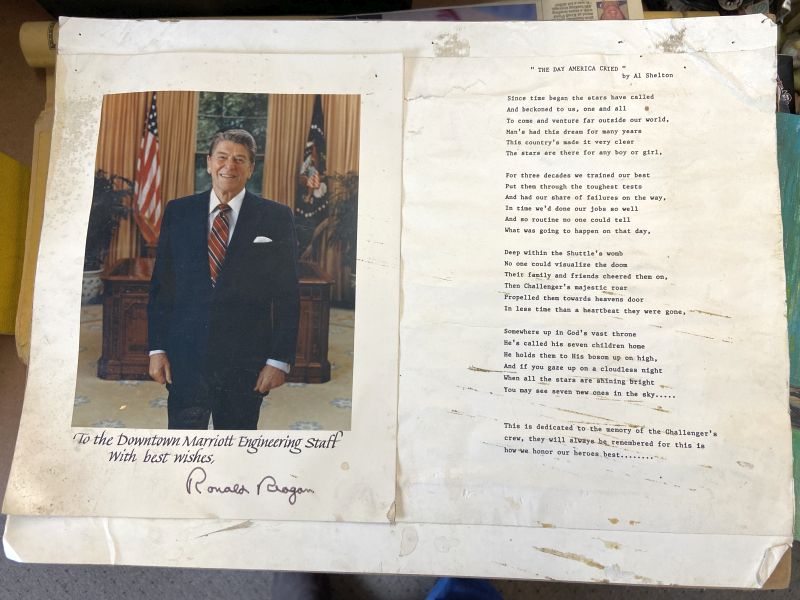 "To the Downtown Marriott Engineering Staff
With best wishes,
Ronald Reagan
" THE DAY AMERICA CRIED "
by Al Shelton
Since time began the stars have called
And beckoned to us, one and all
To come and venture far outside our world,
Man's had this dream for many years
This country's made it very clear
The stars are there for any boy or girl,
For three decades we trained our best
Put them through the toughest tests
And had our share of failures on the way,
In time we'd done our jobs so well
And so routine no one could tell
What was going to happen on that day,
Deep within the Shuttle's womb
No one could visualize the doom
Their family and friends cheered them on,
Then Challenger's majestic roar
Propelled them towards heavens door
In less time than a heartbeat they were gone,
Somewhere up in God's vast throne
He's called his seven children home
He holds them to His bosom up on high,
And if you gaze up on a cloudless night
When all the stars are shining bright
You may see seven new ones in the sky.....
This is dedicated to the memory of the Challenger's
crew, they will always be remembered for this is
how we honor our heroes best........